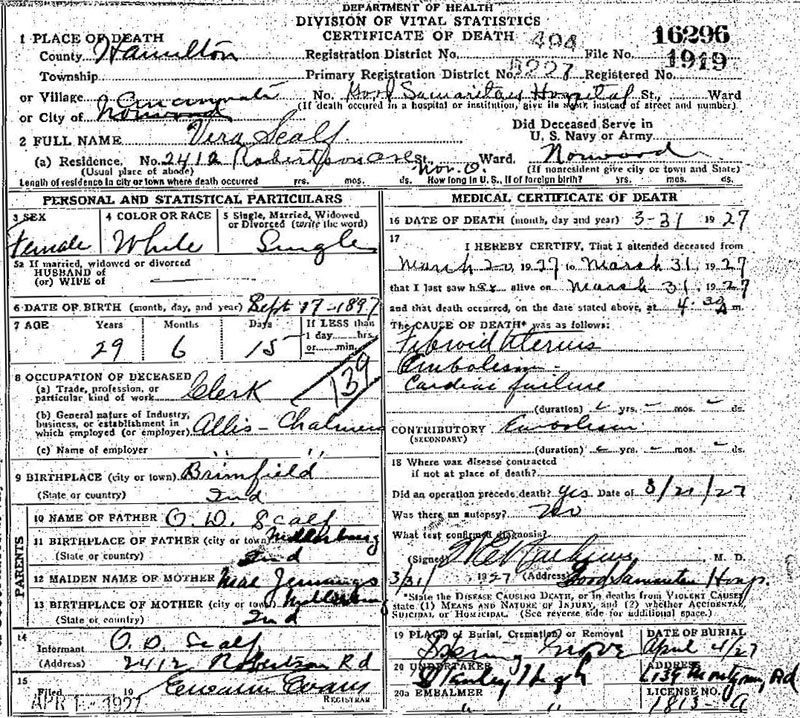 DEPARTMENT OF HEALTH
DIVISION OF VITAL STATISTICS
CERTIFICATE OF DEATH
1 PLACE OF DEATH
County Hamilton
Registration District No. 494 File No. 16296
Township Primary Registration District No. 8227 Registered No. 1919
or Village No. Good Samaritan Hospital St., Ward
or City of Cincinnati Norwood
(If death occurred in a hospital or institution, give its name instead of street and number)
2 FULL NAME Vera Scalf
Did Deceased Serve in
U. S. Navy or Army
(a) Residence. No. 2412 Robertson Ave St., Nor. O. Ward. Norwood
(Usual place of abode) (If nonresident give city or town and State)
Length of residence in city or town where death occurred yrs. mos. ds. How long in U. S., if of foreign birth? yrs. mos. ds.
PERSONAL AND STATISTICAL PARTICULARS
3 SEX 4 COLOR OR RACE 5 Single, Married, Widowed
or Divorced (write the word)
Female White Single
5a If married, widowed or divorced
HUSBAND of
(or) WIFE of
6 DATE OF BIRTH (month, day, and year) Sept 17-1897
7 AGE Years Months Days If LESS than
1 day hrs.
or min.
29 6 15
8 OCCUPATION OF DECEASED
(a) Trade, profession, or
particular kind of work Clerk
139
(b) General nature of Industry,
business, or establishment in
which employed (or employer) Allis-Chalmers
(c) Name of employer " "
9 BIRTHPLACE (city or town) Brimfield
(State or country) Ind
PARENTS
10 NAME OF FATHER O. D. Scalf
11 BIRTHPLACE OF FATHER (city or town) Millersburg
(State or country) Ind
12 MAIDEN NAME OF MOTHER Mae Jennings
13 BIRTHPLACE OF MOTHER (city or town) Millersburg
(State or country) Ind
14 Informant O. D. Scalf
(Address) 2412 Robertson Rd
15 Filed 19
APR 1 - 1927 Evans
REGISTRAR
MEDICAL CERTIFICATE OF DEATH
16 DATE OF DEATH (month, day and year) 3-31 1927
17 I HEREBY CERTIFY, That I attended deceased from
March 20, 1927 to March 31, 1927
that I last saw her alive on March 31, 1927
and that death occurred, on the date stated above, at 4.30 m.
The CAUSE OF DEATH* was as follows:
Fibroid Uterus
Embolism -
Cardiac failure
(duration) yrs. mos. ds.
CONTRIBUTORY Embolism
(SECONDARY)
(duration) yrs. mos. ds.
18 Where was disease contracted
if not at place of death?
Did an operation precede death? yes Date of 3/21/27
Was there an autopsy? no
What test confirmed diagnosis?
(Signed) M. D.
3/31 1927 (Address) Good Samaritan Hosp.
*State the DISEASE CAUSING DEATH, or in deaths from VIOLENT CAUSES
state (1) MEANS AND NATURE OF INJURY, and (2) whether ACCIDENTAL,
SUICIDAL or HOMICIDAL. (See reverse side for additional space.)
19 PLACE of Burial, Cremation, or Removal DATE OF BURIAL
Spring Grove April 4/27
20 UNDERTAKER ADDRESS
Stanley Montgomery Rd
20a EMBALMER LICENSE NO.
" " 1813-A